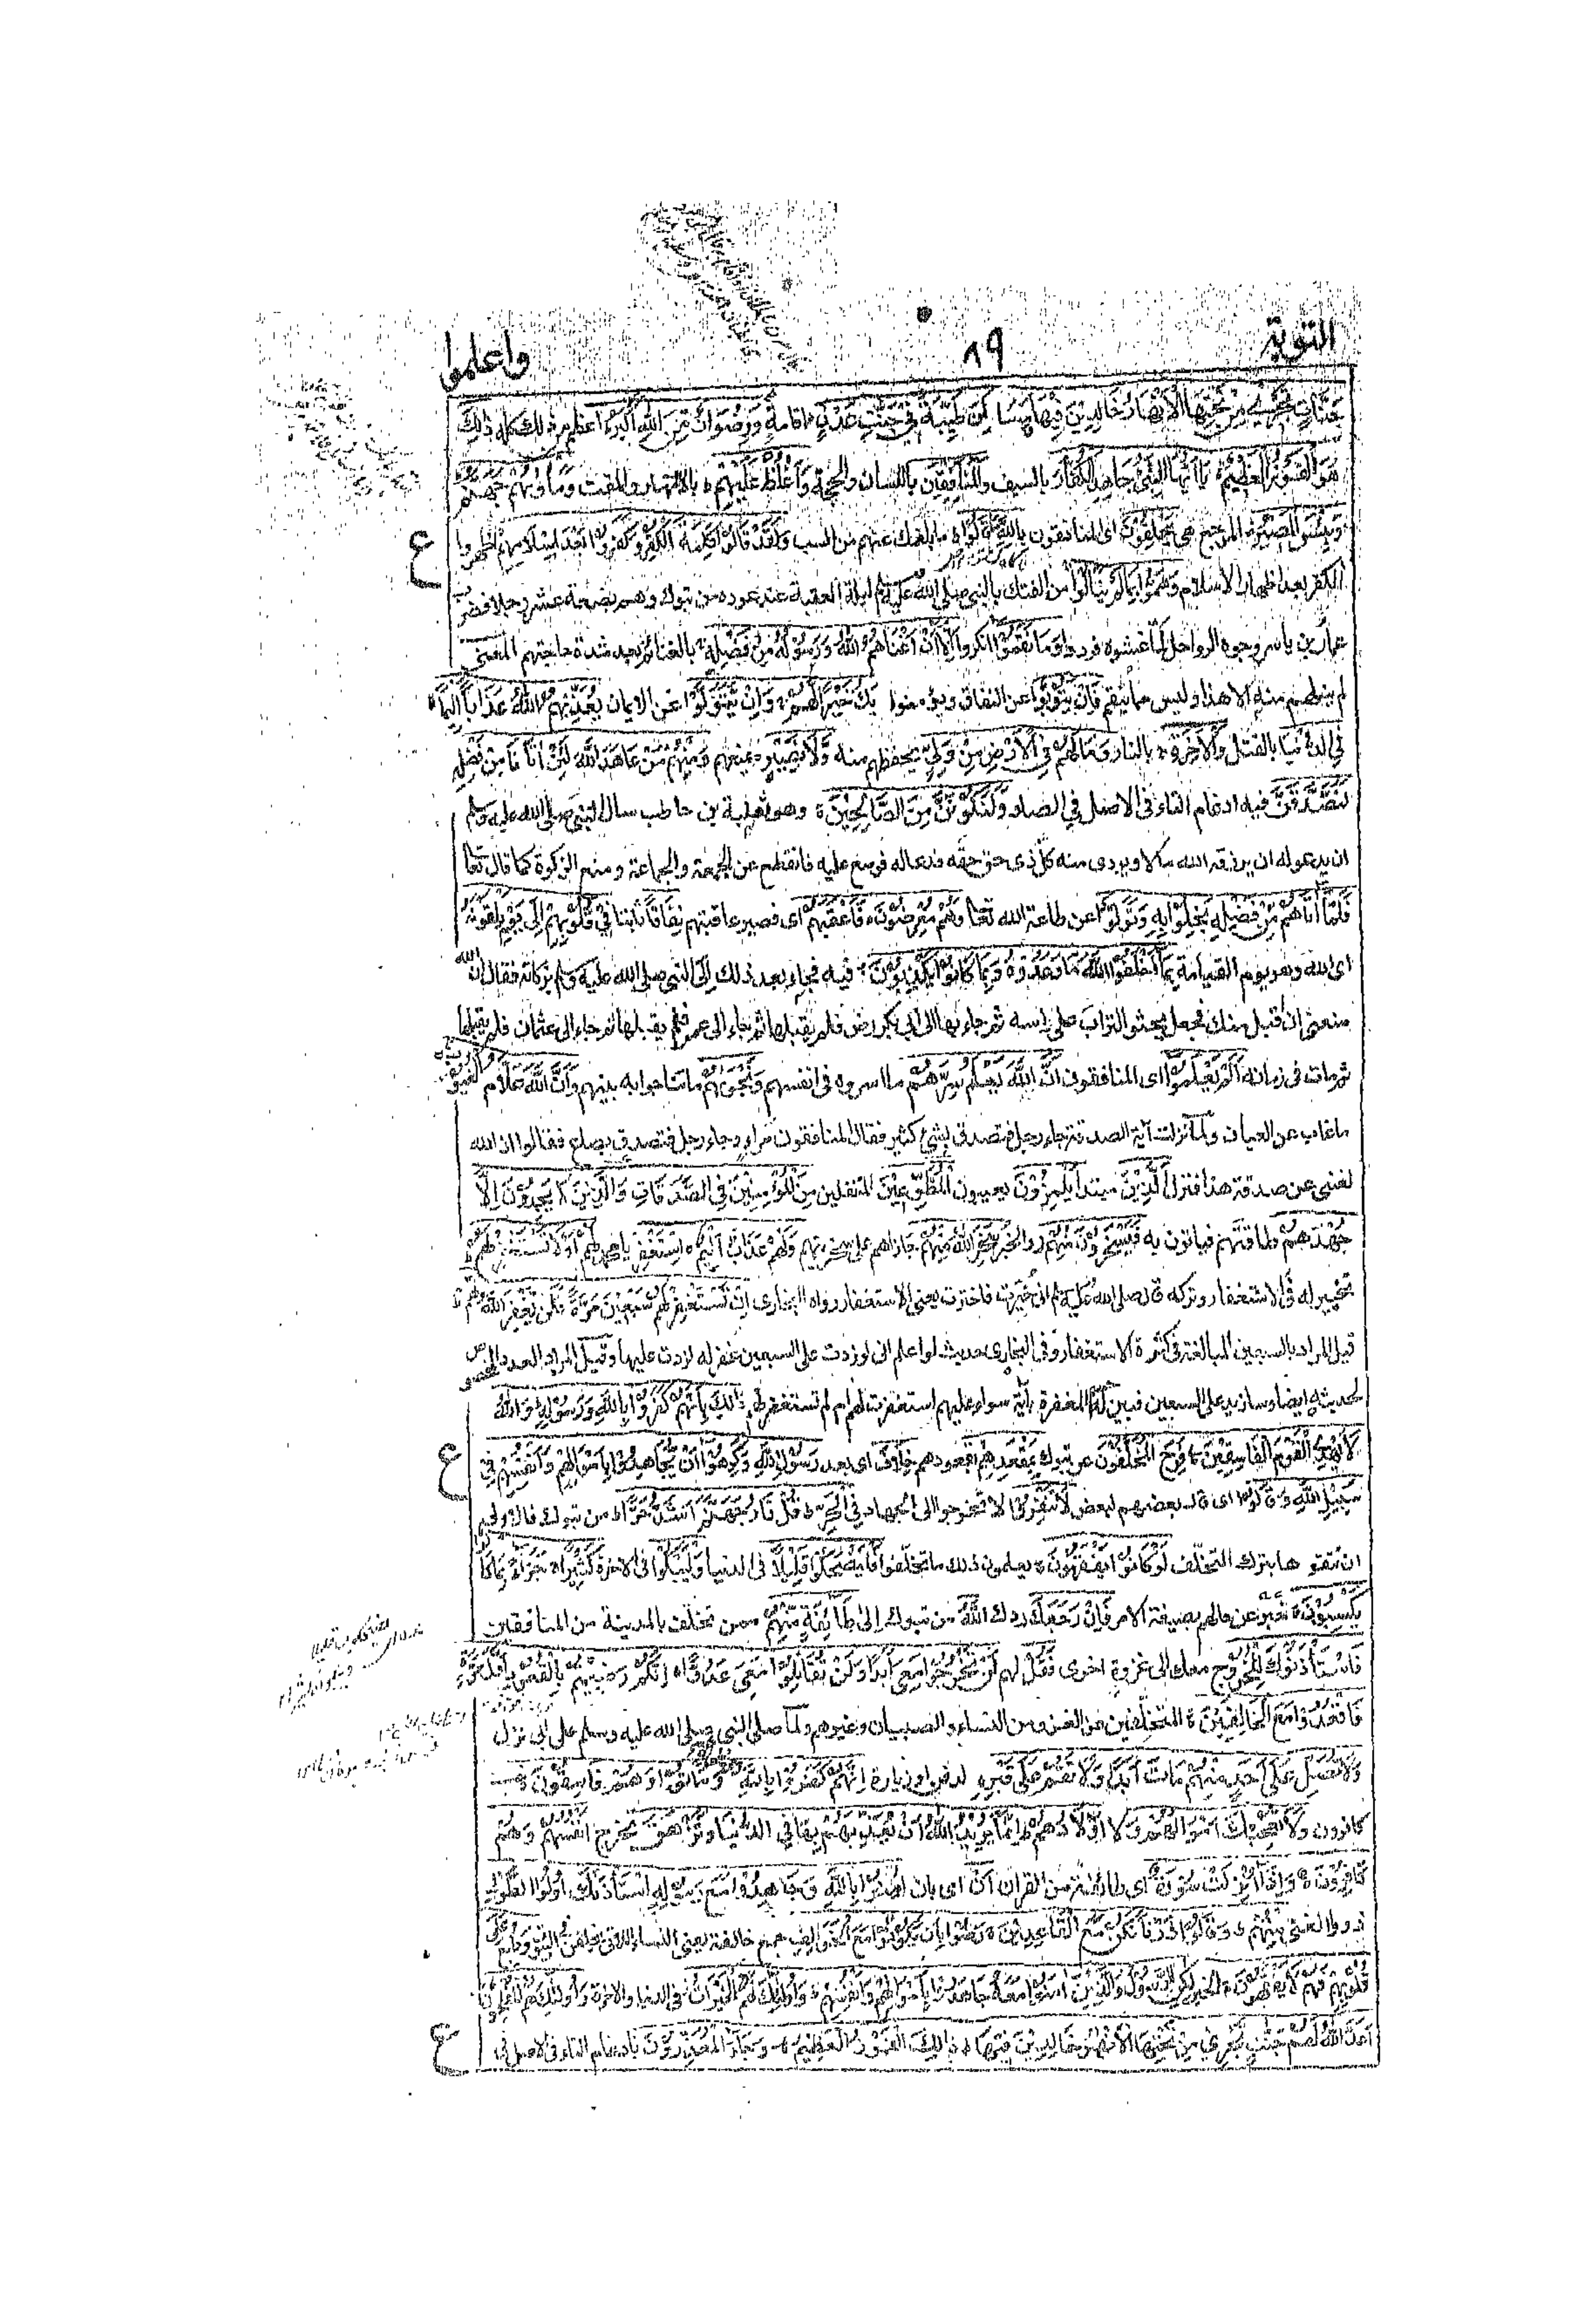 التوبة ٨٩ واعلموا
جَنَّاتٍ تَجْرِيْ مِنْ تَحْتِهَا الْاَنْهَارُ خَالِدِيْنَ فِيْهَا وَمَسَاكِنَ طَيِّبَةً فِيْ جَنّٰتِ عَدْنٍ اقامةٍ وَرِضْوَانٌ مِّنَ اللّٰهِ اَكْبَرُ اعظم من ذلك كله ذٰلِكَ
هُوَ الْفَوْزُ الْعَظِيْمُ يَا اَيُّهَا النَّبِيُّ جَاهِدِ الْكُفَّارَ بالسيف وَالْمُنَافِقِيْنَ باللسان والحجة وَاغْلُظْ عَلَيْهِمْ بالانتهار والمقت وَمَاْوٰهُمْ جَهَنَّمُ
وَبِئْسَ الْمَصِيْرُ المرجع هى يَحْلِفُوْنَ اى المنافقون بِاللّٰهِ مَا قَالُوْا ما بلغك عنهم من السب وَلَقَدْ قَالُوْا كَلِمَةَ الْكُفْرِ وَكَفَرُوْا بَعْدَ اِسْلَامِهِمْ اظهروا
الكفر بعد اظهار الاسلام وَهَمُّوْا بِمَا لَمْ يَنَالُوْا من الفتك بالنبى صلى الله عليه وسلم ليلة العقبة عند عوده من تبوك وهم بضعة عشر رجلا فضرب
عمار بن ياسر وجوه الرواحل لما غشوه فردوا وَمَا نَقَمُوْا انكروا اِلَّا اَنْ اَغْنَاهُمُ اللّٰهُ وَرَسُوْلُهُ مِنْ فَضْلِهٖ بالغنائم بعد شدة حاجتهم المعنى
لم ينلهم منه الا هذا وليس مما ينقم فَاِنْ يَتُوْبُوْا عن النفاق ويؤمنوا يَكُ خَيْرًا لَّهُمْ وَاِنْ يَّتَوَلَّوْا عن الايمان يُعَذِّبْهُمُ اللّٰهُ عَذَابًا اَلِيْمًا
فِى الدُّنْيَا بالقتل وَالْاٰخِرَةِ بالنار وَمَا لَهُمْ فِى الْاَرْضِ مِنْ وَّلِيٍّ يحفظهم منه وَّلَا نَصِيْرٍ يمنعهم وَمِنْهُمْ مَّنْ عَاهَدَ اللّٰهَ لَئِنْ اٰتَانَا مِنْ فَضْلِهٖ
لَنَصَّدَّقَنَّ فيه ادغام التاء فى الاصل في الصاد وَلَنَكُوْنَنَّ مِنَ الصَّالِحِيْنَ وهو ثعلبة بن حاطب سال النبى صلى الله عليه وسلم
ان يدعو له ان يرزقه الله مالا ويودى منه كل ذى حق حقه فدعا له فوسع عليه فانقطع عن الجمعة والجماعة ومنع الزكوة كما قال تعالى
فَلَمَّا اٰتَاهُمْ مِّنْ فَضْلِهٖ بَخِلُوْا بِهٖ وَتَوَلَّوْا عن طاعة الله تعالى وَهُمْ مُّعْرِضُوْنَ فَاَعْقَبَهُمْ اى فصير عاقبتهم نِفَاقًا ثابتا فِيْ قُلُوْبِهِمْ اِلٰى يَوْمِ يَلْقَوْنَهُ
اى الله وهو يوم القيامة بِمَا اَخْلَفُوا اللّٰهَ مَا وَعَدُوْهُ وَبِمَا كَانُوْا يَكْذِبُوْنَ فيه فجاء بعد ذلك الى النبى صلى الله عليه وسلم بزكاته فقال ان الله
منعنى ان اقبل منك فجعل يحثو التراب على راسه ثم جاء بها الى ابى بكر رض فلم يقبلها ثم جاء الى عمر فلم يقبلها ثم جاء الى عثمان فلم يقبلها
ثم مات فى زمانه اَلَمْ يَعْلَمُوْا اى المنافقون اَنَّ اللّٰهَ يَعْلَمُ سِرَّهُمْ ما اسروه فى انفسهم وَنَجْوٰىهُمْ ما تناجوا به بينهم وَاَنَّ اللّٰهَ عَلَّامُ الْغُيُوْبِ
ما غاب عن العيان ولما نزلت آية الصدقة جاء رجل فتصدق بشئ كثير فقال المنافقون مراء وجاء رجل فتصدق بصاع فقالوا ان الله
لغنى عن صدقة هذا فنزل اَلَّذِيْنَ مبتدأ يَلْمِزُوْنَ يعيبون الْمُطَّوِّعِيْنَ المتنفلين مِنَ الْمُؤْمِنِيْنَ فِى الصَّدَقَاتِ وَالَّذِيْنَ لَا يَجِدُوْنَ اِلَّا
جُهْدَهُمْ طاقتهم فياتون به فَيَسْخَرُوْنَ مِنْهُمْ والخبر سَخِرَ اللّٰهُ مِنْهُمْ جازاهم على سخريتهم وَلَهُمْ عَذَابٌ اَلِيْمٌ اِسْتَغْفِرْ يا محمد لَهُمْ اَوْ لَا تَسْتَغْفِرْ لَهُمْ
تخيير له فى الاستغفار وتركه قال صلى الله عليه وسلم انى خيرت فاخترت يعنى الاستغفار رواه البخارى اِنْ تَسْتَغْفِرْ لَهُمْ سَبْعِيْنَ مَرَّةً فَلَنْ يَّغْفِرَ اللّٰهُ لَهُمْ
قيل المراد بالسبعين المبالغة فى كثرة الاستغفار وفى البخارى حديث لو اعلم انى لو زدت على السبعين غفر له لزدت عليها وقيل المراد العدد المخصوص
لحديثه ايضا وسازيد على السبعين فبين له حسم المغفرة بآية سواء عليهم استغفرت لهم ام لم تستغفر لهم ذٰلِكَ بِاَنَّهُمْ كَفَرُوْا بِاللّٰهِ وَرَسُوْلِهٖ وَاللّٰهُ
لَا يَهْدِى الْقَوْمَ الْفَاسِقِيْنَ فَرِحَ الْمُخَلَّفُوْنَ عن تبوك بِمَقْعَدِهِمْ بقعودهم خِلَافَ اى بعد رَسُوْلِ اللّٰهِ وَكَرِهُوْا اَنْ يُّجَاهِدُوْا بِاَمْوَالِهِمْ وَاَنْفُسِهِمْ فِيْ
سَبِيْلِ اللّٰهِ وَقَالُوْا اى قال بعضهم لبعض لَا تَنْفِرُوْا لا تخرجوا الى الجهاد فِى الْحَرِّ قُلْ نَارُ جَهَنَّمَ اَشَدُّ حَرًّا من تبوك فالاولى
ان تتقوها بترك التخلف لَوْ كَانُوْا يَفْقَهُوْنَ يعلمون ذلك ما تخلفوا فَلْيَضْحَكُوْا قَلِيْلًا فى الدنيا وَلْيَبْكُوْا فى الاخرة كَثِيْرًا جَزَاءً بِمَا كَانُوْا
يَكْسِبُوْنَ خبر عن حالهم بصيغة الامر فَاِنْ رَّجَعَكَ ردك اللّٰهُ من تبوك اِلٰى طَائِفَةٍ مِّنْهُمْ ممن تخلف بالمدينة من المنافقين
فَاسْتَاْذَنُوْكَ لِلْخُرُوْجِ معك الى غزوة اخرى فَقُلْ لهم لَنْ تَخْرُجُوْا مَعِيَ اَبَدًا وَلَنْ تُقَاتِلُوْا مَعِيَ عَدُوًّا اِنَّكُمْ رَضِيْتُمْ بِالْقُعُوْدِ اَوَّلَ مَرَّةٍ
فَاقْعُدُوْا مَعَ الْخَالِفِيْنَ المتخلفين عن الغزو من النساء والصبيان وغيرهم ولما صلى النبى صلى الله عليه وسلم على ابى نزل
وَلَا تُصَلِّ عَلٰى اَحَدٍ مِّنْهُمْ مَّاتَ اَبَدًا وَّلَا تَقُمْ عَلٰى قَبْرِهٖ لدفن او زيارة اِنَّهُمْ كَفَرُوْا بِاللّٰهِ وَرَسُوْلِهٖ وَمَاتُوْا وَهُمْ فَاسِقُوْنَ
كافرون وَلَا تُعْجِبْكَ اَمْوَالُهُمْ وَلَا اَوْلَادُهُمْ اِنَّمَا يُرِيْدُ اللّٰهُ اَنْ يُّعَذِّبَهُمْ بِهَا فِى الدُّنْيَا وَتَزْهَقَ تخرج اَنْفُسُهُمْ وَهُمْ
كَافِرُوْنَ وَاِذَا اُنْزِلَتْ سُوْرَةٌ اى طائفة من القران اَنْ اى بان اٰمِنُوْا بِاللّٰهِ وَجَاهِدُوْا مَعَ رَسُوْلِهِ اسْتَاْذَنَكَ اُولُوا الطَّوْلِ
ذووا الغنى مِنْهُمْ وَقَالُوْا ذَرْنَا نَكُنْ مَّعَ الْقَاعِدِيْنَ رَضُوْا بِاَنْ يَّكُوْنُوْا مَعَ الْخَوَالِفِ جمع خالفة يعنى النساء اللاتى تخلفن فى البيوت وَطُبِعَ عَلٰى
قُلُوْبِهِمْ فَهُمْ لَا يَفْقَهُوْنَ الخير لٰكِنِ الرَّسُوْلُ وَالَّذِيْنَ اٰمَنُوْا مَعَهُ جَاهَدُوْا بِاَمْوَالِهِمْ وَاَنْفُسِهِمْ وَاُولٰئِكَ لَهُمُ الْخَيْرَاتُ فى الدنيا والاخرة وَاُولٰئِكَ هُمُ الْمُفْلِحُوْنَ
اَعَدَّ اللّٰهُ لَهُمْ جَنّٰتٍ تَجْرِيْ مِنْ تَحْتِهَا الْاَنْهٰرُ خَالِدِيْنَ فِيْهَا ذٰلِكَ الْفَوْزُ الْعَظِيْمُ وَجَاءَ الْمُعَذِّرُوْنَ بادغام التاء فى الاصل فى
ع
ع
ع